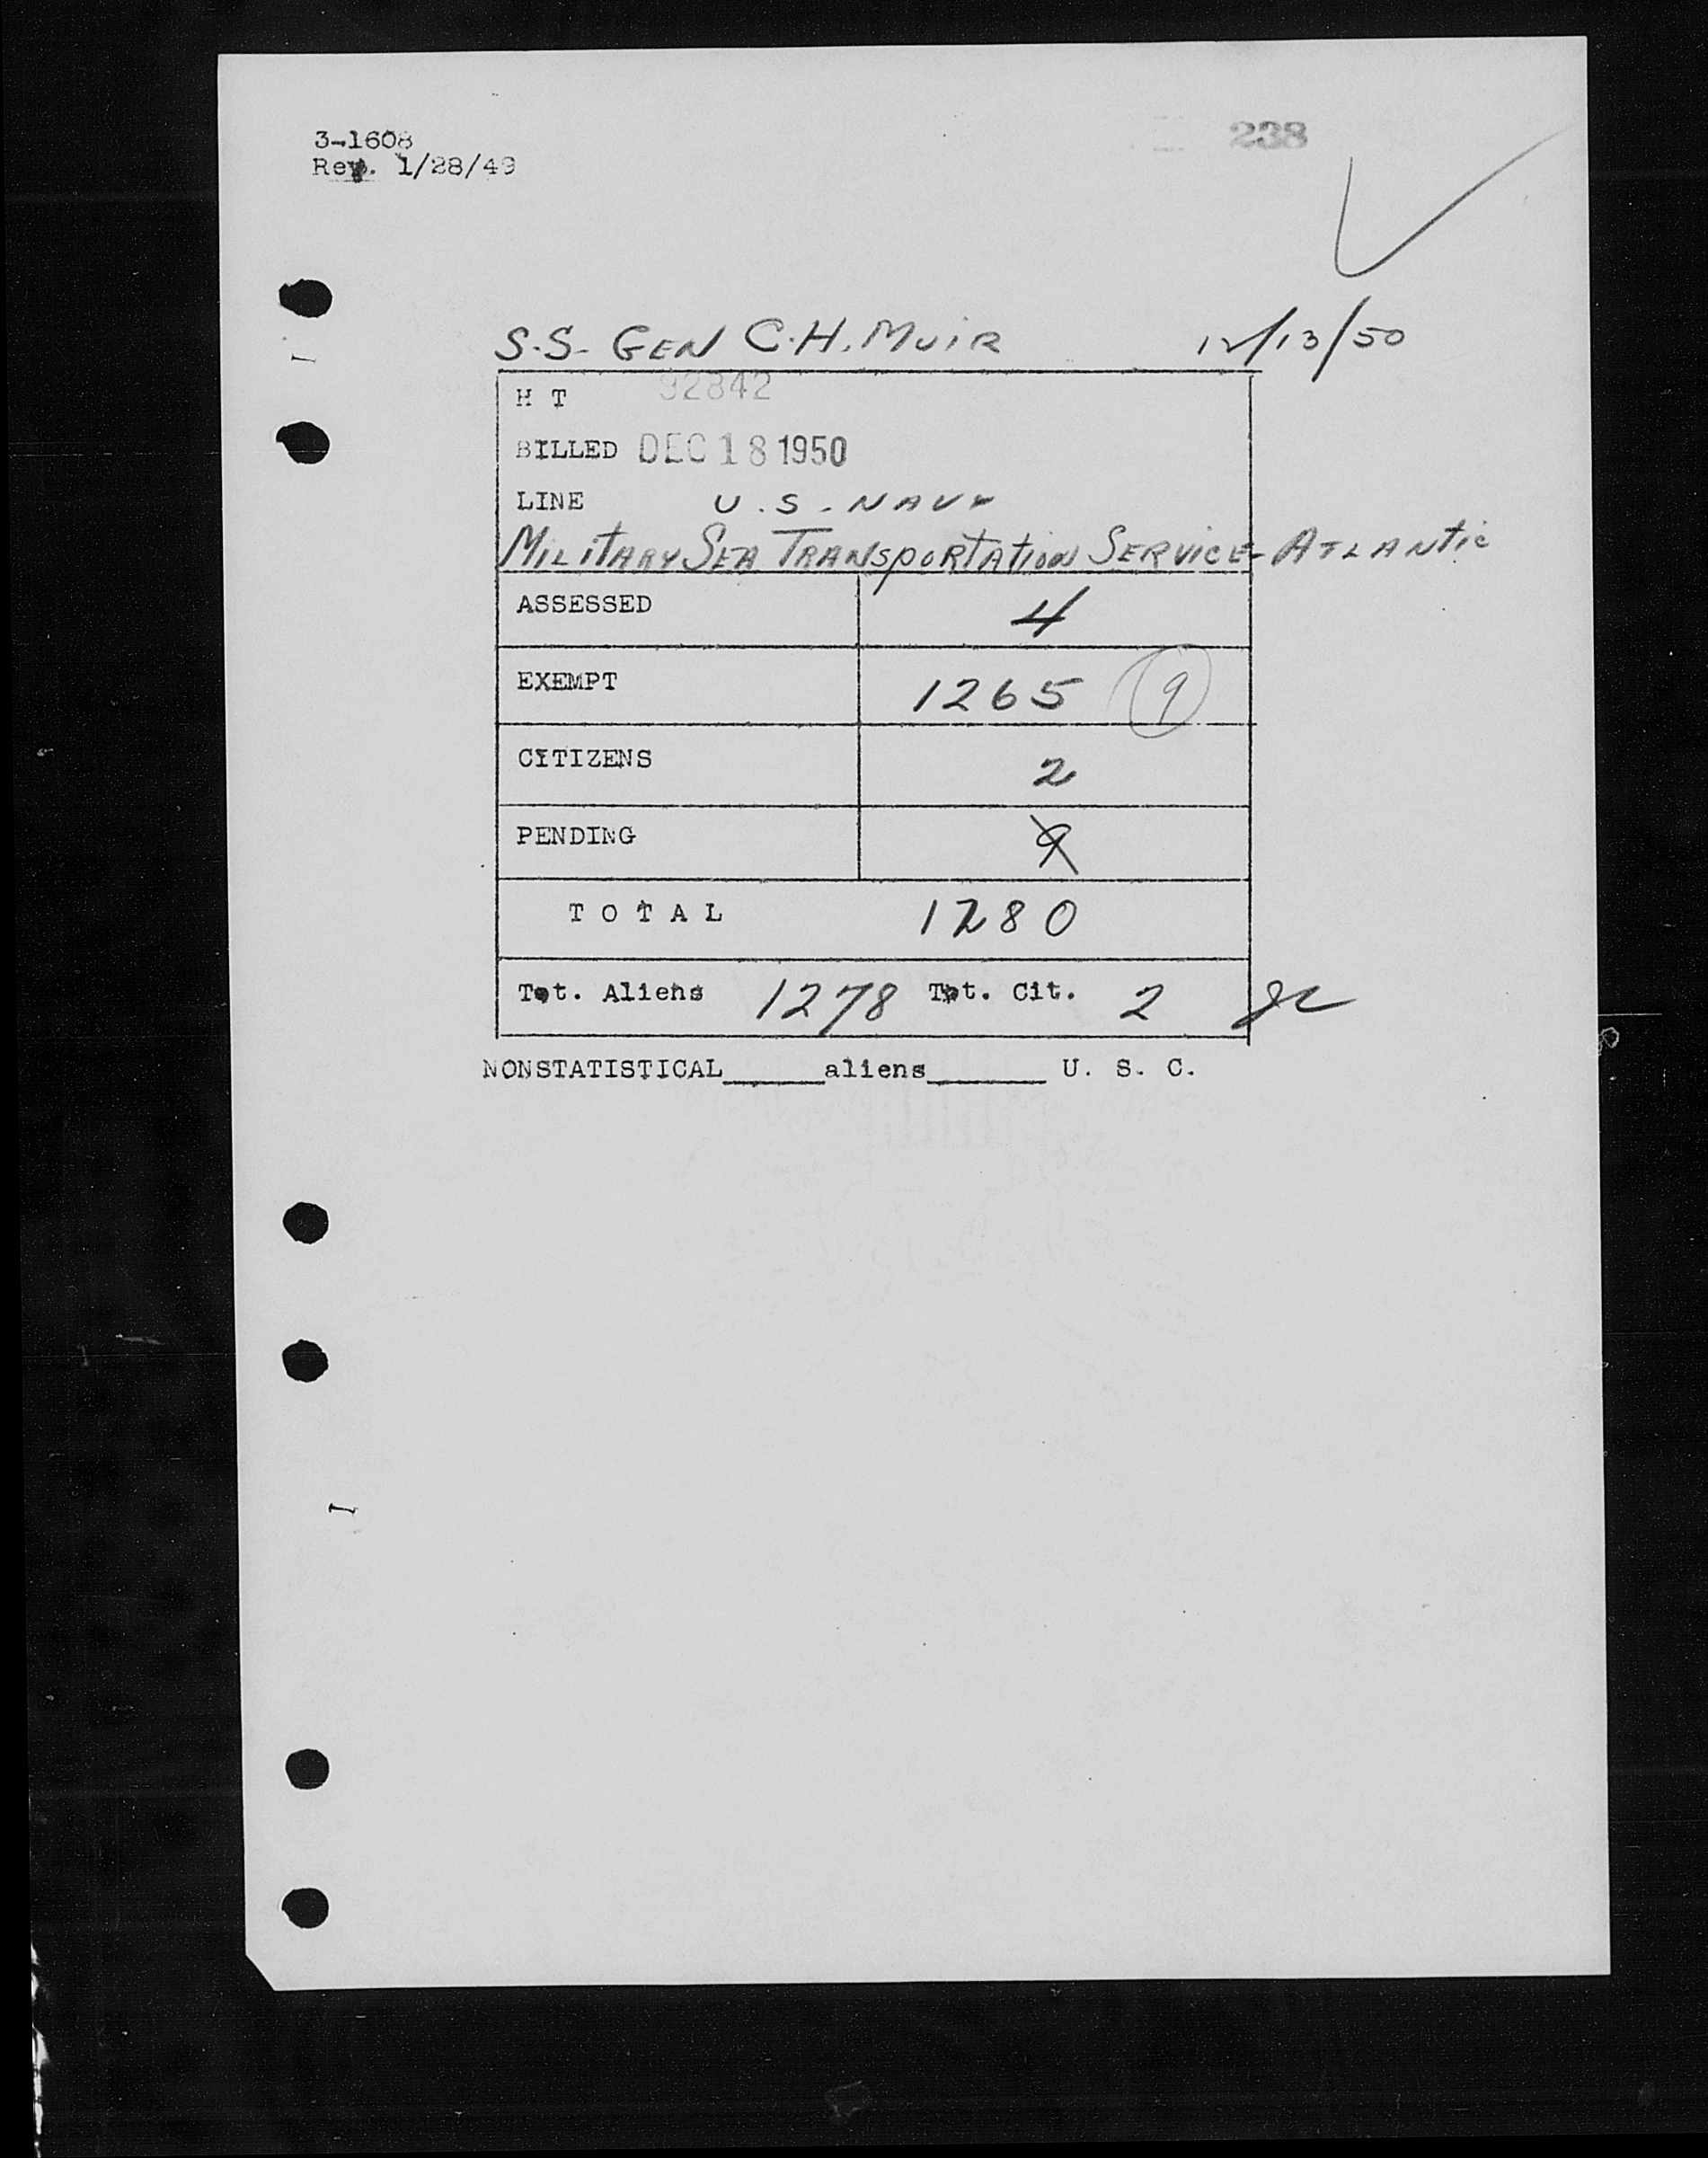 3-1608
238
Rev. 1/28/49
S.S. GEN C.H. MUIR 12/13/50
H T 92842
BILLED DEC 18 1950
LINE U.S. NAVY
MILITARY SEA TRANSPORTATION SERVICE - ATLANTIC
ASSESSED 4
EXEMPT 1265 9
CITIZENS 2
PENDING 9
TOTAL 1280
Tot. Aliens 1278 Tot. Cit. 2
NONSTATISTICAL______aliens_______ U. S. C.